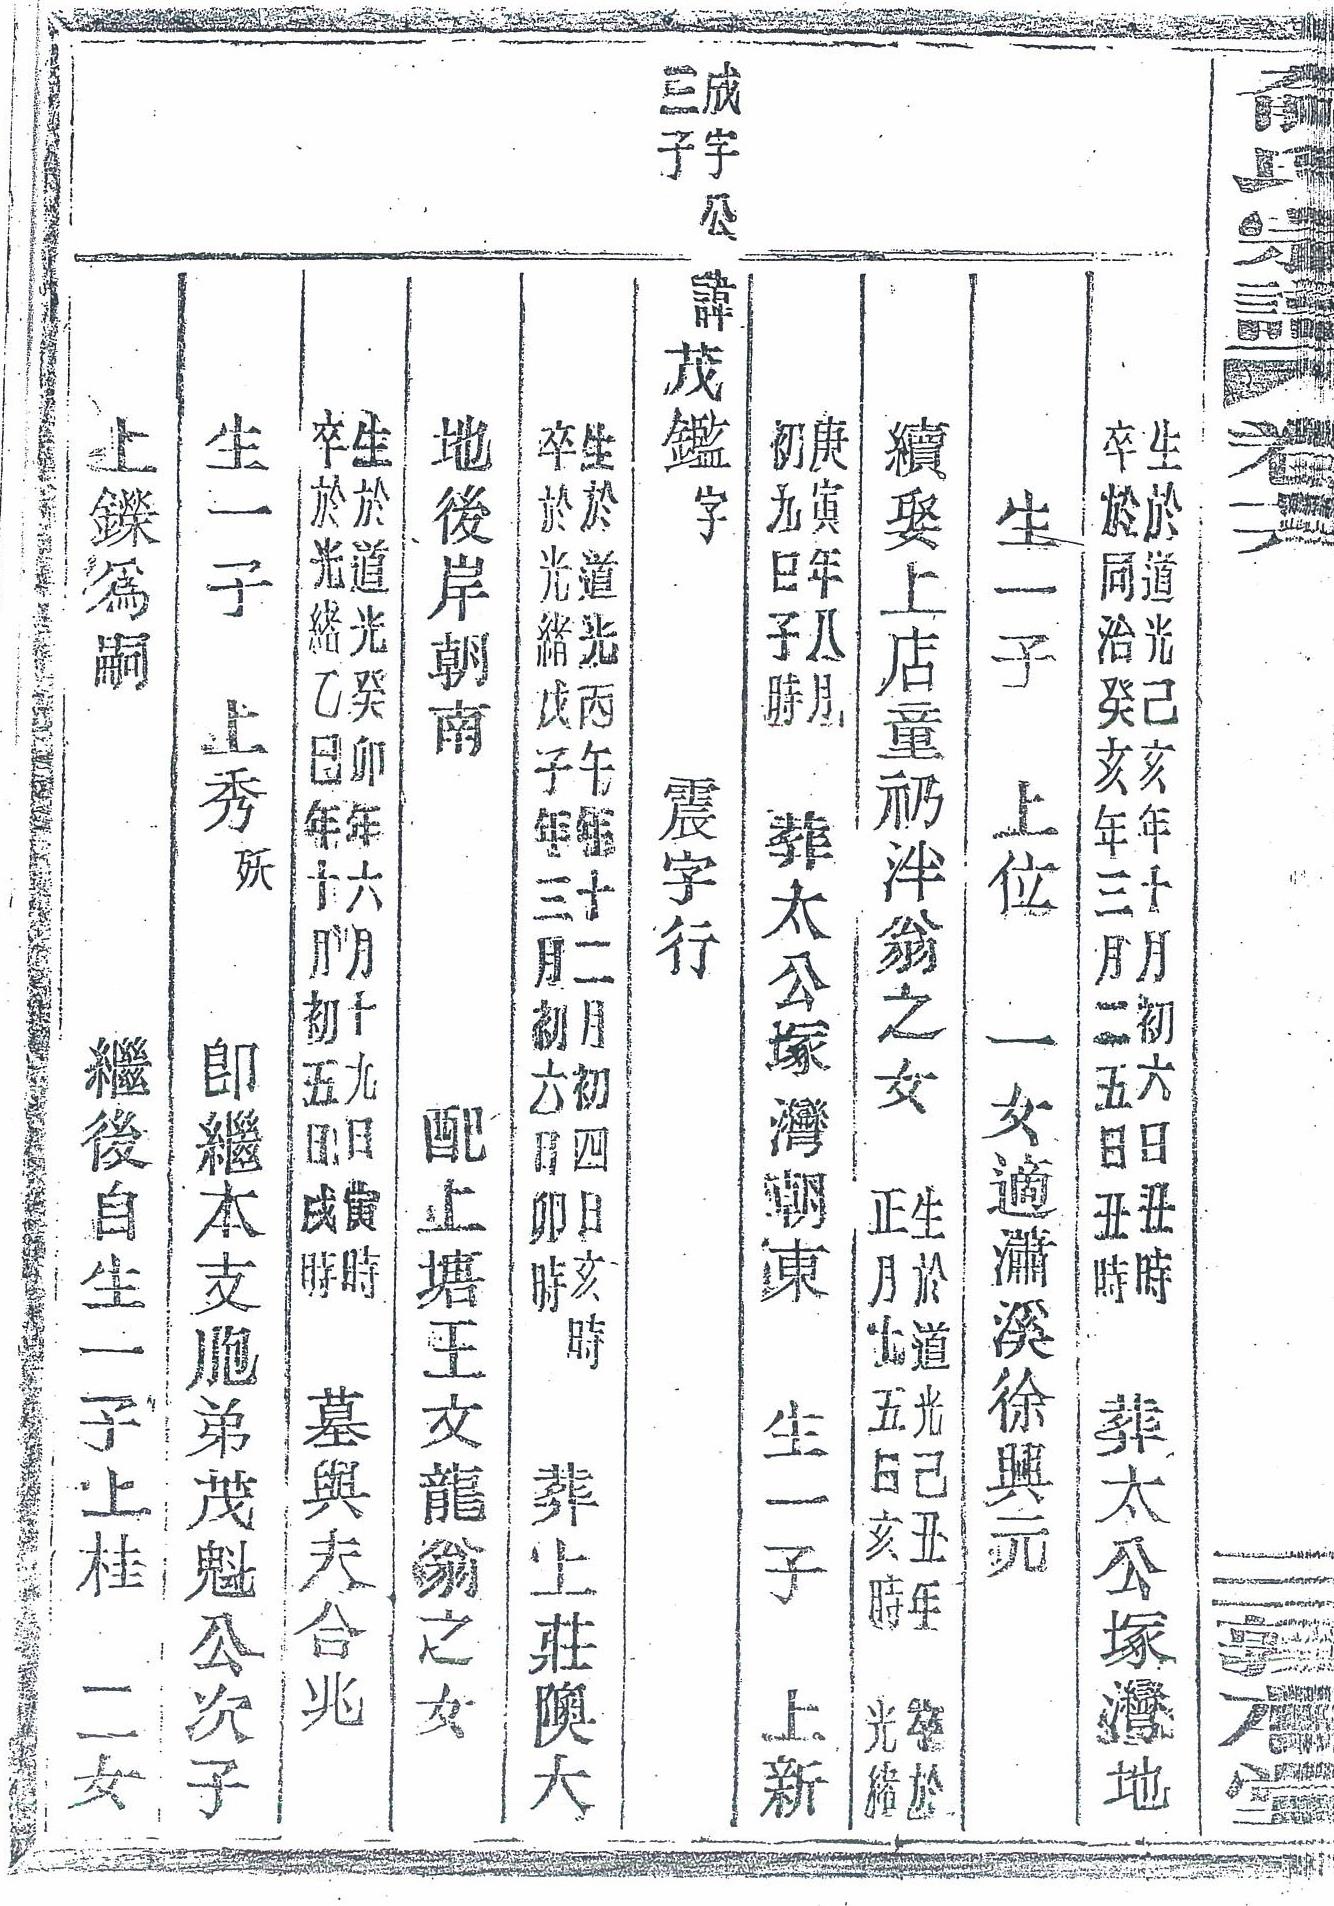 生於道光己亥年十月初六日丑時
卒於同治癸亥年三月二五日丑時
葬太公塚灣地
生一子 上位 一女適瀟溪徐興元
續娶上店童礽泮翁之女
生於道光己丑年
正月廿五日亥時
卒於
光緒
庚寅年八月
初九日子時
葬太公塚灣朝東 生一子 上新
成字公
三子
諱茂鑑字 震字行
生於道光丙午年十二月初四日亥時
卒於光緒戊子年三月初六日卯時
葬上莊隩大
地後岸朝南 配上塘王文龍翁之女
生於道光癸卯年六月十九日寅時
卒於光緒乙巳年十月初五日戌時
墓與夫合兆
生一子 上秀 殀 即繼本支胞弟茂魁公次子
上鑠爲嗣 繼後自生一子上桂 二女